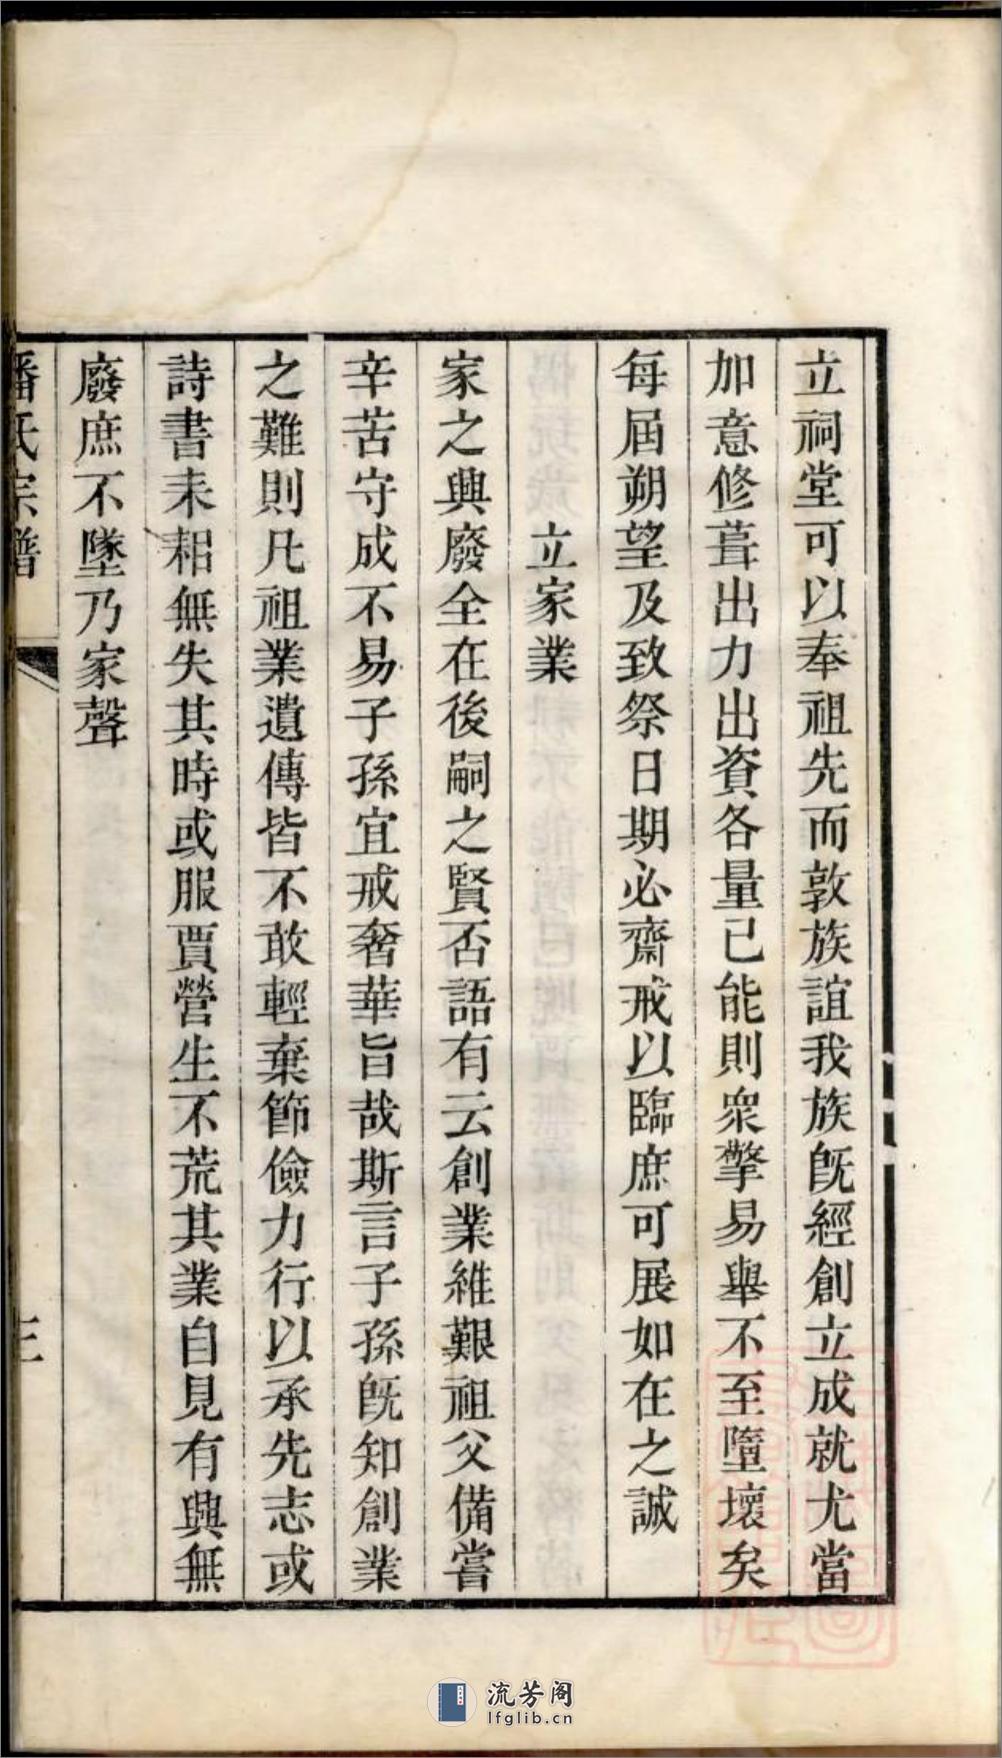 立祠堂可以奉祖先而敦族誼我族旣經創立成就尤當
加意修葺出力出資各量己能則衆擎易舉不至墮壞矣
每屆朔望及致祭日期必齋戒以臨庶可展如在之誠
立家業
家之興廢全在後嗣之賢否語有云創業維艱祖父備嘗
辛苦守成不易子孫宜戒奢華旨哉斯言子孫旣知創業
之難則凡祖業遺傳皆不敢輕棄節儉力行以承先志或
詩書耒耜無失其時或服賈營生不荒其業自見有興無
廢庶不墜乃家聲
潘氏宗譜
三
流芳阁
lfglib.cn